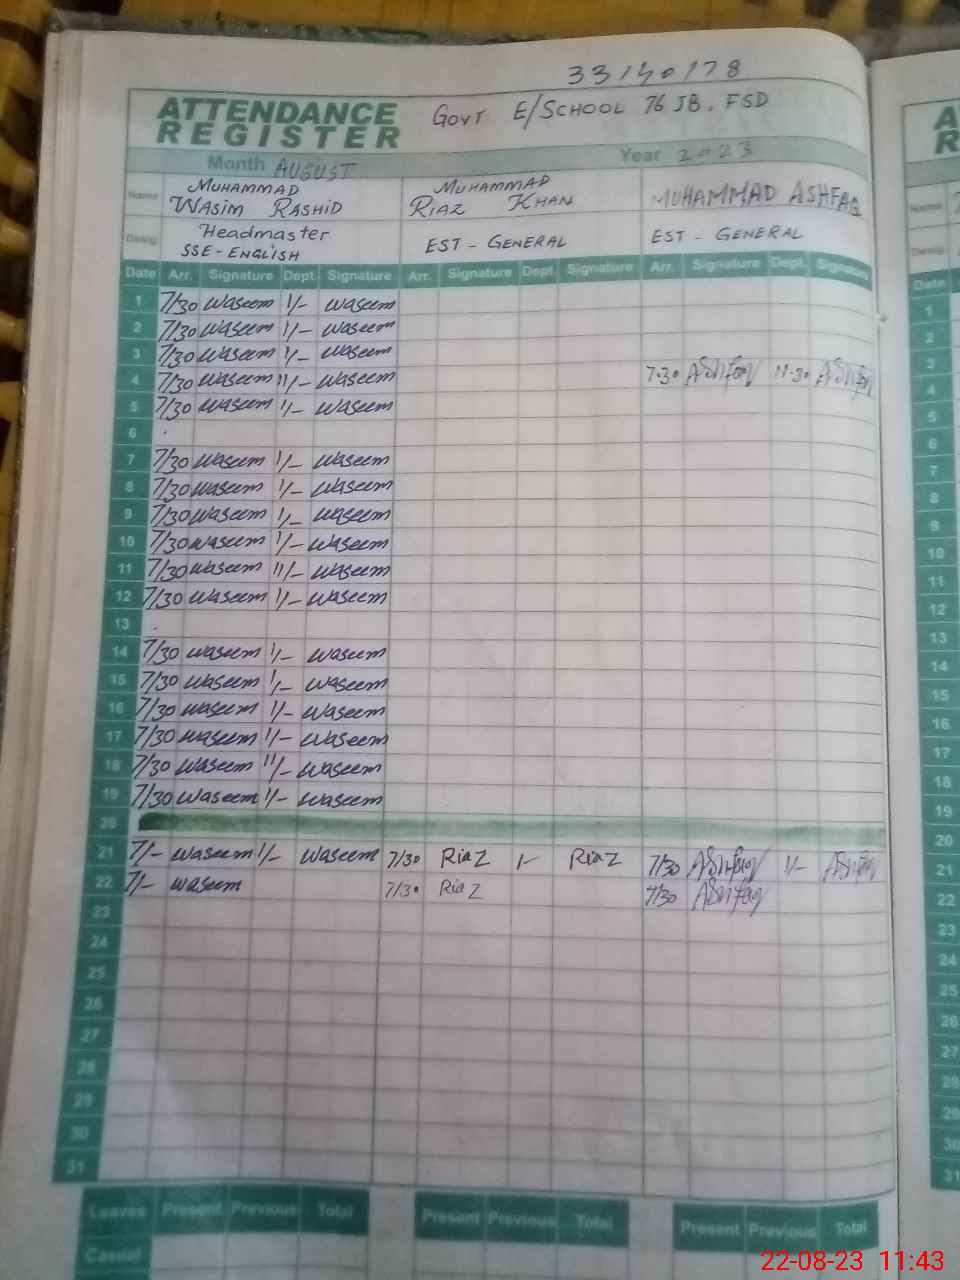 33140178
ATTENDANCE REGISTER
GOVT E/SCHOOL 76 JB. FSD
Month AUGUST Year 2023
Name MUHAMMAD WASIM RASHID MUHAMMAD RIAZ KHAN MUHAMMAD ASHFAQ
Desig. Headmaster SSE-ENGLISH EST - GENERAL EST - GENERAL
Date Arr. Signature Dept. Signature Arr. Signature Dept. Signature Arr. Signature Dept. Signature
1 7/30 Waseem 1/- Waseem
2 7/30 Waseem 1/- Waseem
3 7/30 Waseem 1/- Waseem
4 7/30 Waseem 11/- Waseem 7.30 Ashfaq 11.30 Ashfaq
5 7/30 Waseem 1/- Waseem
6
7 7/30 Waseem 1/- Waseem
8 7/30 Waseem 1/- Waseem
9 7/30 Waseem 1/- Waseem
10 7/30 Waseem 1/- Waseem
11 7/30 Waseem 11/- Waseem
12 7/30 Waseem 1/- Waseem
13
14 7/30 Waseem 1/- Waseem
15 7/30 Waseem 1/- Waseem
16 7/30 Waseem 1/- Waseem
17 7/30 Waseem 1/- Waseem
18 7/30 Waseem 11/- Waseem
19 7/30 Waseem 1/- Waseem
20
21 7/- Waseem 1/- Waseem 7/30 Riaz 1- Riaz 7/30 Ashfaq 1/- Ashfaq
22 7/- Waseem 7/30 Riaz 7/30 Ashfaq
23
24
25
26
27
28
29
30
31
Leaves Present Previous Total Present Previous Total Present Previous Total
Casual
22-08-23 11:43